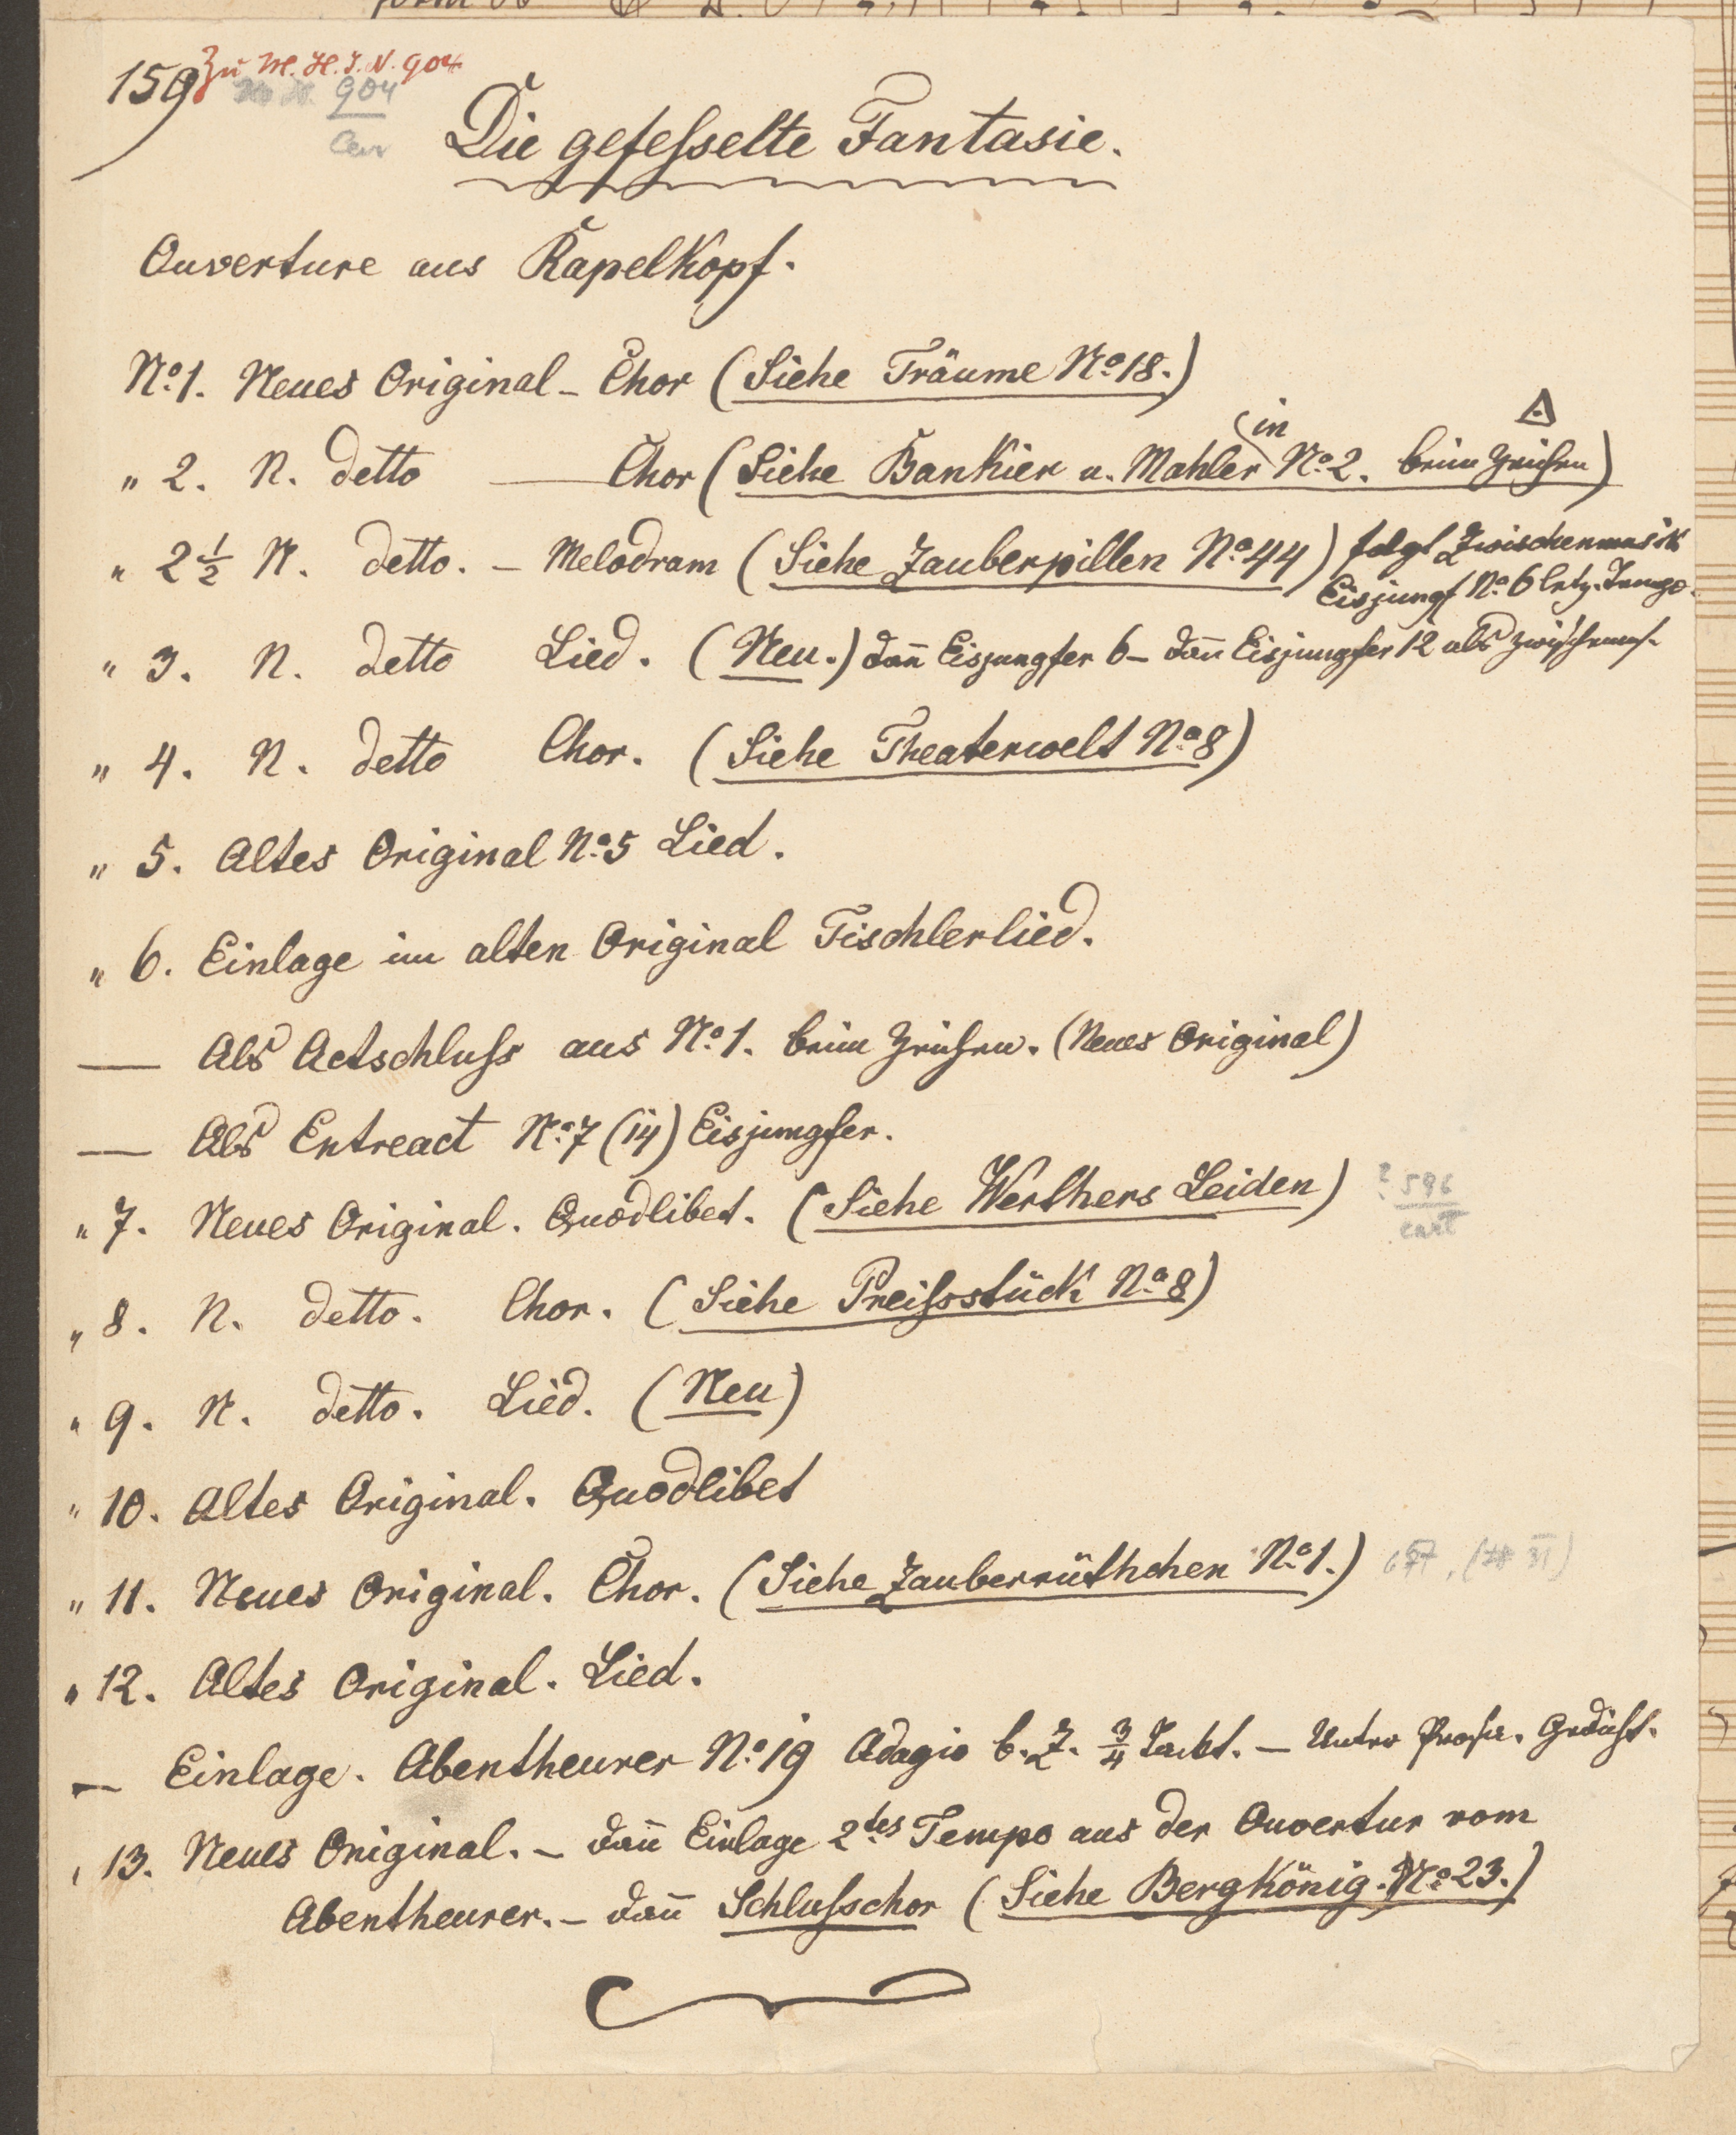 159 Zu M. H. I. N. 904
904
Die gefeſselte Fantasie.
Ouverture aus Rapelkopf.
No 1. Neues Original - Chor (Siehe Träume No 18.)
" 2. N. detto — Chor (Siehe Bankier u. Mahler in No 2. beim Zeichen)
" 2 1/2 N. detto. - Melodram (Siehe Zauberpillen No 44) folgt Zwischenmusik
Eisjungf No 6 letz. Tempo.
" 3. N. detto Lied. (Neu.) dan̄ Eisjungfer 6 - dan̄ Eisjungfer 12 als Zwischenms.
" 4. N. detto Chor. (Siehe Theaterwelt No 8)
" 5. Altes Original No 5 Lied.
" 6. Einlage im alten Original Tischlerlied.
— Als Actschluſs aus No 1. beim Zeichen. (Neues Original)
— Als Entreact No 7 (14) Eisjungfer.
" 7. Neues Original. Quodlibet. (Siehe Werthers Leiden) ? 596
" 8. N. detto. Chor. (Siehe Preiſsstück No 8)
" 9. N. detto. Lied. (Neu)
" 10. Altes Original. Quodlibet
" 11. Neues Original. Chor. (Siehe Zauberrüthchen No 1.)
" 12. Altes Original. Lied.
— Einlage. Abentheurer No 19 Adagio b. Z. 3/4 Takt. — Unter Gedicht.
" 13. Neues Original. - dan̄ Einlage 2tes Tempo aus der Ouvertur vom
Abentheurer. - dan̄ Schluſschor (Siehe Bergkönig. No 23.)